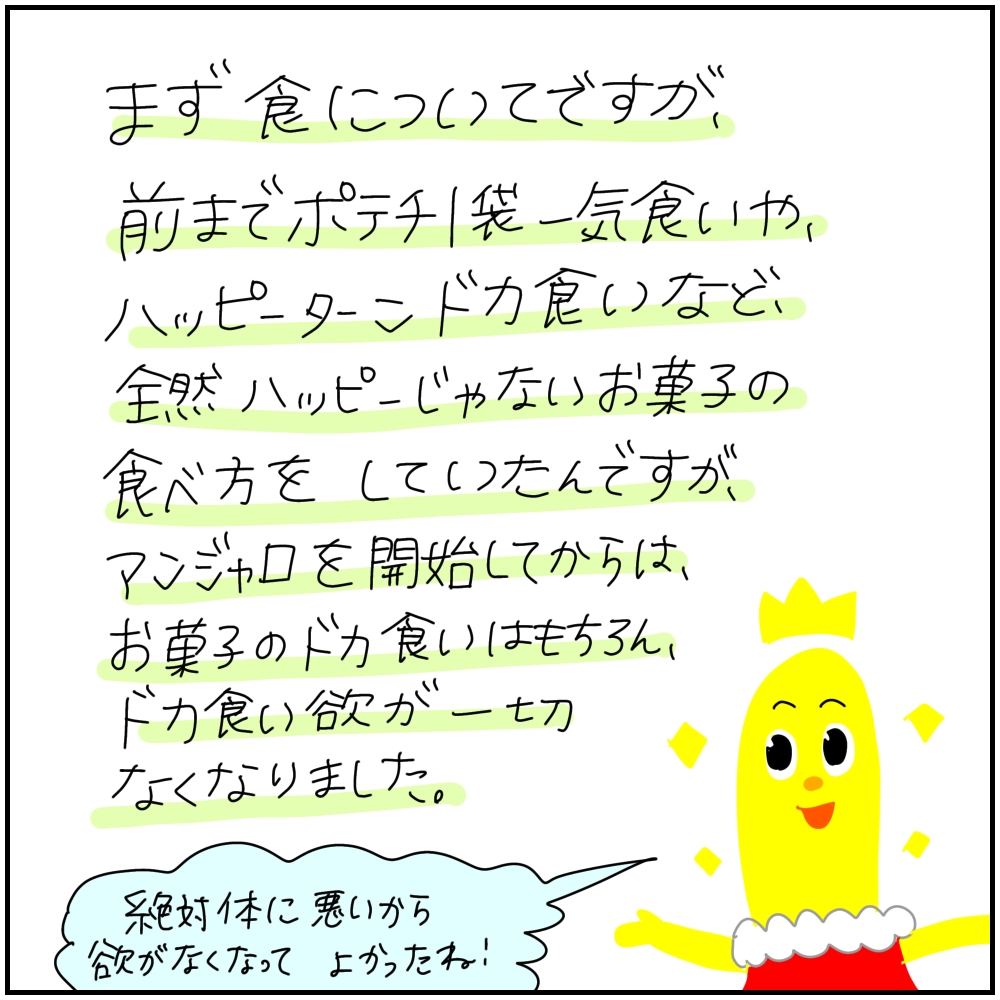 まず食についてですが、
前までポテチ1袋一気食いや、
ハッピーターンドカ食いなど、
全然ハッピーじゃないお菓子の
食べ方をしていたんですが、
マンジャロを開始してからは、
お菓子のドカ食いはもちろん、
ドカ食い欲が一切
なくなりました。
絶対体に悪いから
欲がなくなって よかったね!